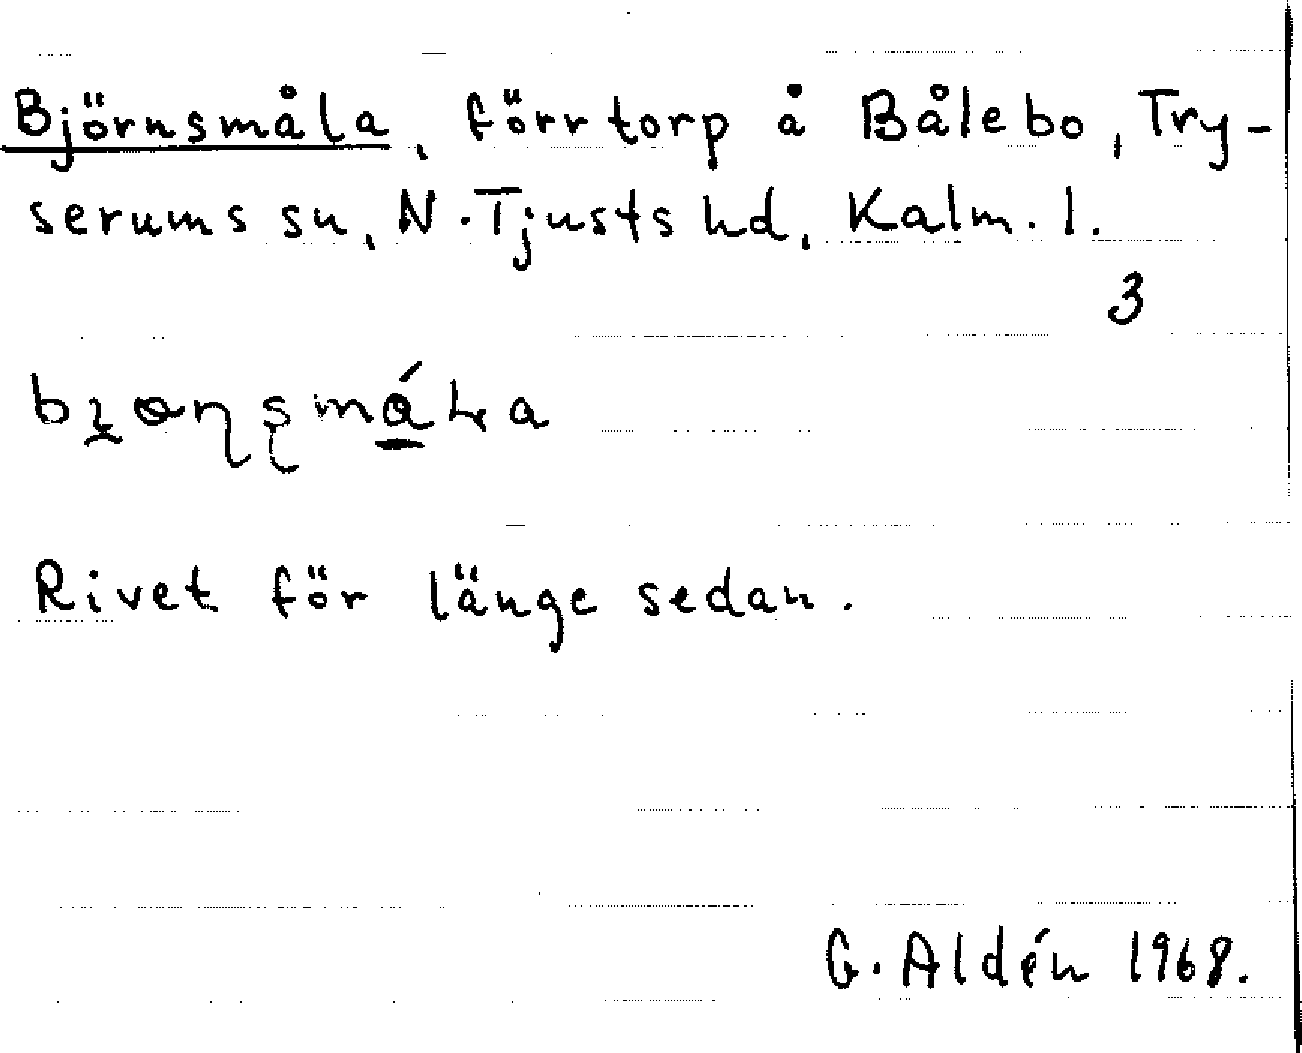 Björnsmåla, förr torp å Bålebo, Try-
serums sn, N. Tjusts hd, Kalm. l.
3
Rivet för länge sedan.
G. Aldén 1968.